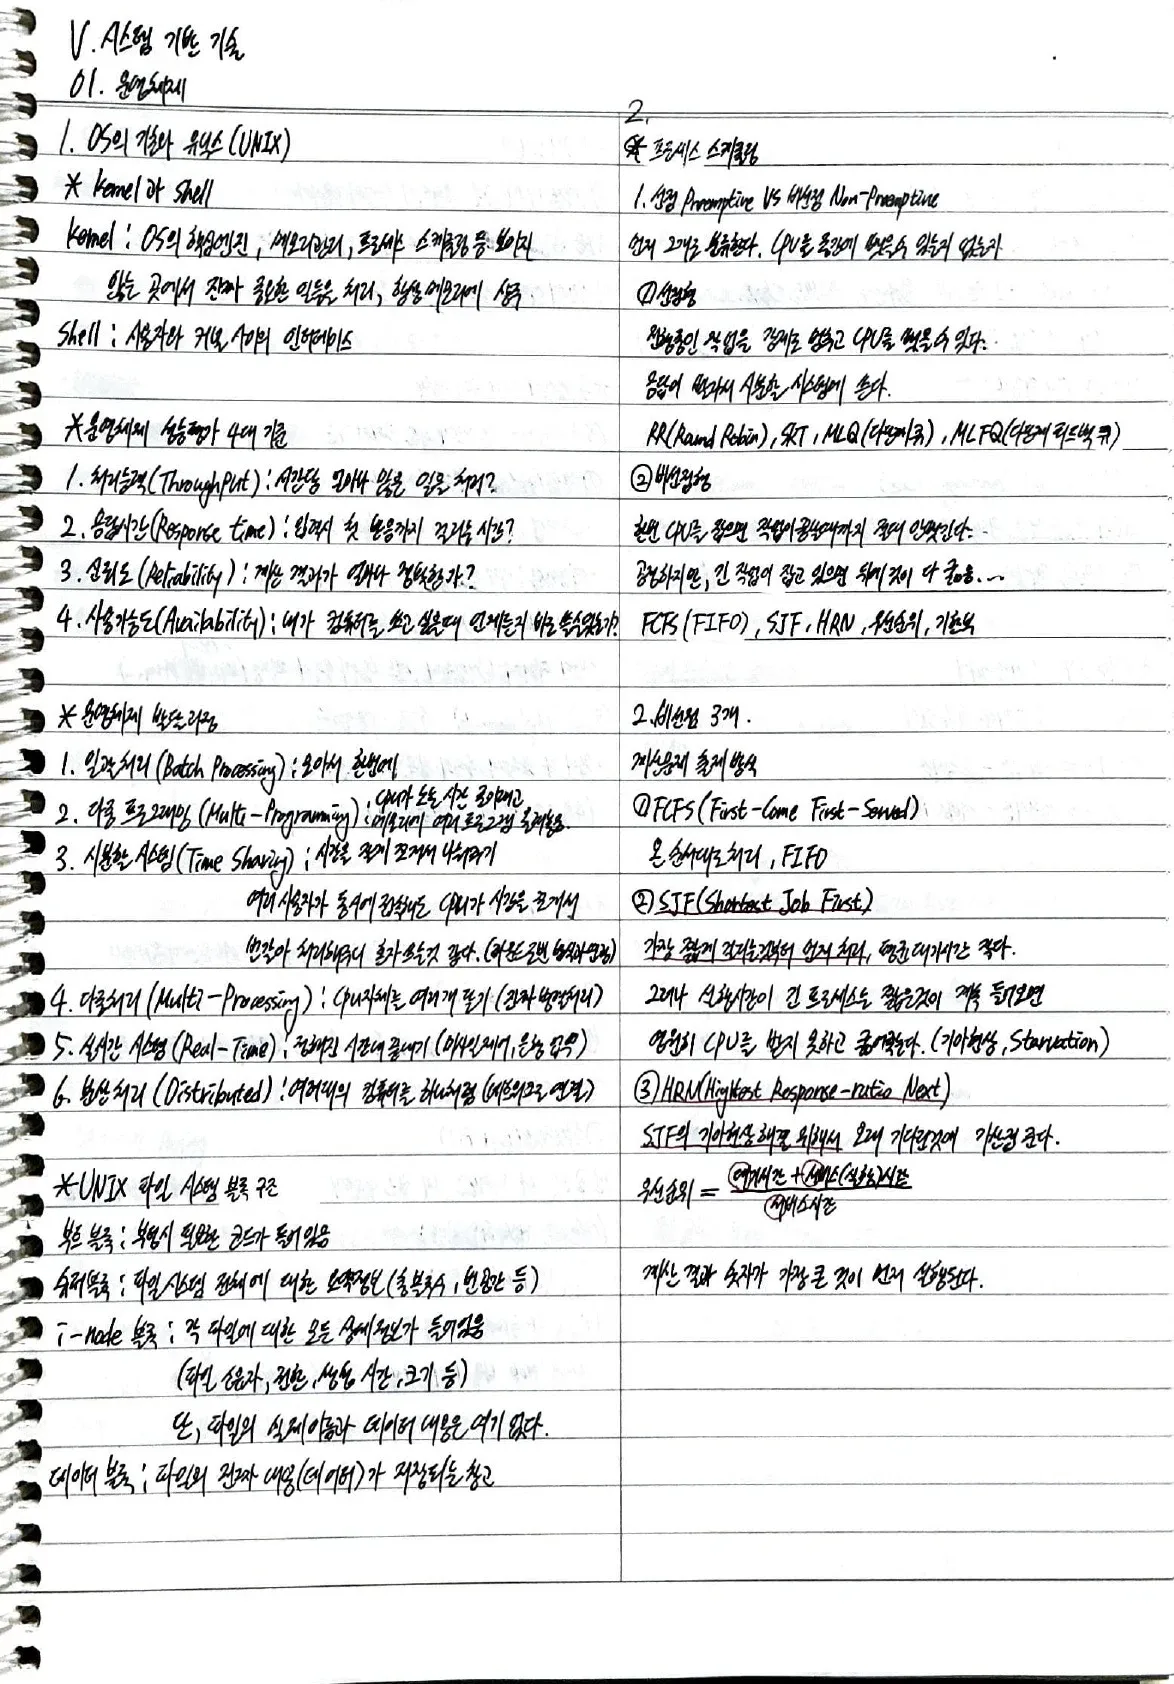 V. 시스템 기반 기술
01. 운영체제
1. OS의 기초와 유닉스(UNIX)
* Kernel과 Shell
Kernel : OS의 핵심엔진, 메모리관리, 프로세스 스케줄링 등 보이지
않는 곳에서 진짜 중요한 일들을 처리, 항상 메모리에 상주
Shell : 사용자와 커널 사이의 인터페이스
* 운영체제 성능평가 4대 기준
1. 처리능력(Throughput) : 시간당 얼마나 많은 일을 처리?
2. 응답시간(Response time) : 입력시 첫 반응까지 걸리는 시간?
3. 신뢰도(Reliability) : 계산 결과가 얼마나 정확한가?
4. 사용가능도(Availability) : 내가 컴퓨터를 쓰고 싶을때 언제든지 바로 쓸수있는가?
* 운영체제 발달과정
1. 일괄처리(Batch Processing) : 모아서 한번에
2. 다중 프로그래밍(Multi-Programming) : CPU가 노는 시간 줄이려고
메모리에 여러 프로그램 올려놓음.
3. 시분할 시스템(Time Sharing) : 시간을 잘게 쪼개서 나눠쓰기
여러 사용자가 동시에 접속해도 CPU가 시간을 쪼개서
번갈아 처리해주니 혼자 쓰는것 같다. (라운드로빈 방식과 연결)
4. 다중처리(Multi-Processing) : CPU자체를 여러개 달기 (진짜 병렬처리)
5. 실시간 시스템(Real-Time) : 정해진 시간내 끝내기 (미사일제어, 은행 업무)
6. 분산처리(Distributed) : 여러대의 컴퓨터를 하나처럼 (네트워크로 연결)
* UNIX 파일 시스템 블록 구조
부트 블록 : 부팅시 필요한 코드가 들어있음
슈퍼블록 : 파일시스템 전체에 대한 요약정보(총블록수, 빈공간 등)
i-node 블록 : 각 파일에 대한 모든 상세정보가 들어있음
(파일 소유자, 권한, 생성 시간, 크기 등)
단, 파일의 실제이름과 데이터 내용은 여기 없다.
데이터 블록 : 파일의 진짜 내용(데이터)가 저장되는 창고
2.
* 프로세스 스케줄링
1. 선점 Preemptive VS 비선점 Non-Preemptive
먼저 2개로 분류한다. CPU를 중간에 뺏을수 있는지 없는지
① 선점형
진행중인 작업을 강제로 멈추고 CPU를 뺏을 수 있다.
응답이 빨라서 시분할 시스템에 쓴다.
RR(Round Robin), SRT, MLQ(다단계큐), MLFQ(다단계 피드백 큐)
② 비선점형
한번 CPU를 잡으면 작업이 끝날때까지 절대 안뺏긴다.
공정하지만, 긴 작업이 잡고 있으면 뒤에것이 다 굶음...
FCFS(FIFO), SJF, HRN, 우선순위, 기한부
2. 비선점 3개.
계산문제 출제 방식
① FCFS(First-Come First-Served)
온 순서대로처리, FIFO
② SJF(Shortest Job First)
가장 짧게 걸리는것부터 먼저 처리, 평균 대기시간 작다.
그러나 실행시간이 긴 프로세스는 짧은것이 계속 들어오면
영원히 CPU를 받지 못하고 굶어죽는다. (기아현상, Starvation)
③ HRN(Highest Response-ratio Next)
SJF의 기아현상 해결 위해서 오래 기다린것에 가산점 준다.
우선순위 = 대기시간 + 서비스(실행)시간
서비스시간
계산 결과 숫자가 가장 큰 것이 먼저 실행된다.